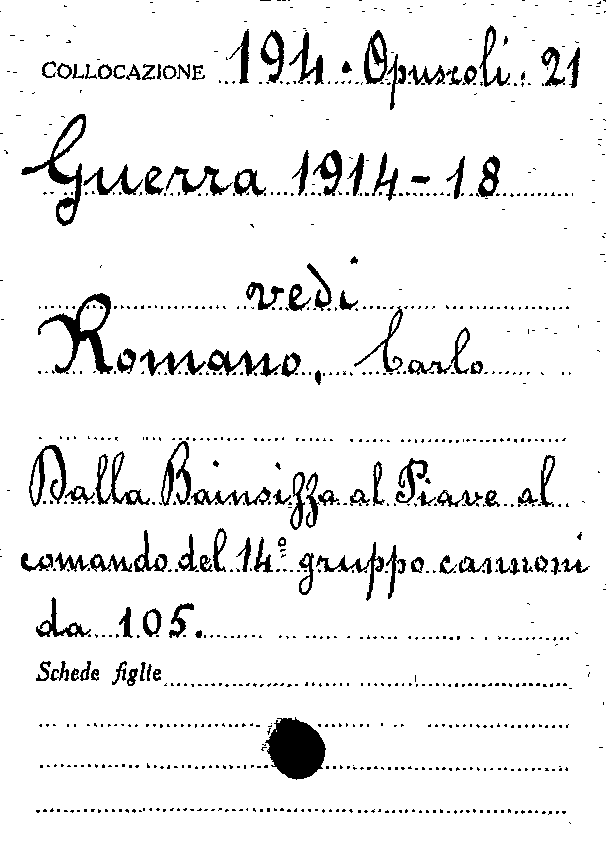 COLLOCAZIONE 194 · Opuscoli · 21
Guerra 1914-18
vedi
Romano, Carlo
Dalla Bainsizza al Piave al
comando del 14º gruppo cannoni
da 105.
Schede figlie